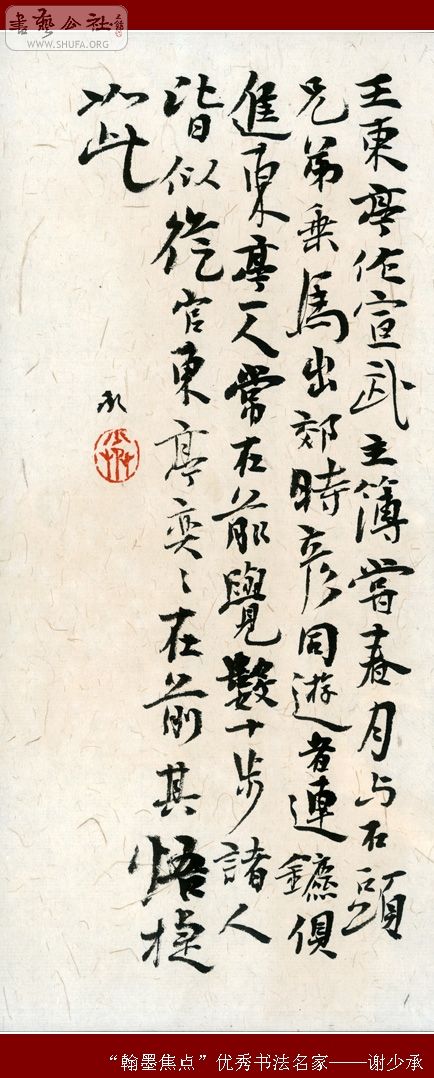 書藝公社
WWW.SHUFA.ORG
王東亭作宣武主簿嘗春月与石頭
兄弟乘馬出郊時彦同遊者連鑣俱
進東亭一人常在前覺數十步諸人
皆似從官東亭奕々在前其悟捷
如此
承
“翰墨焦点”优秀书法名家——谢少承